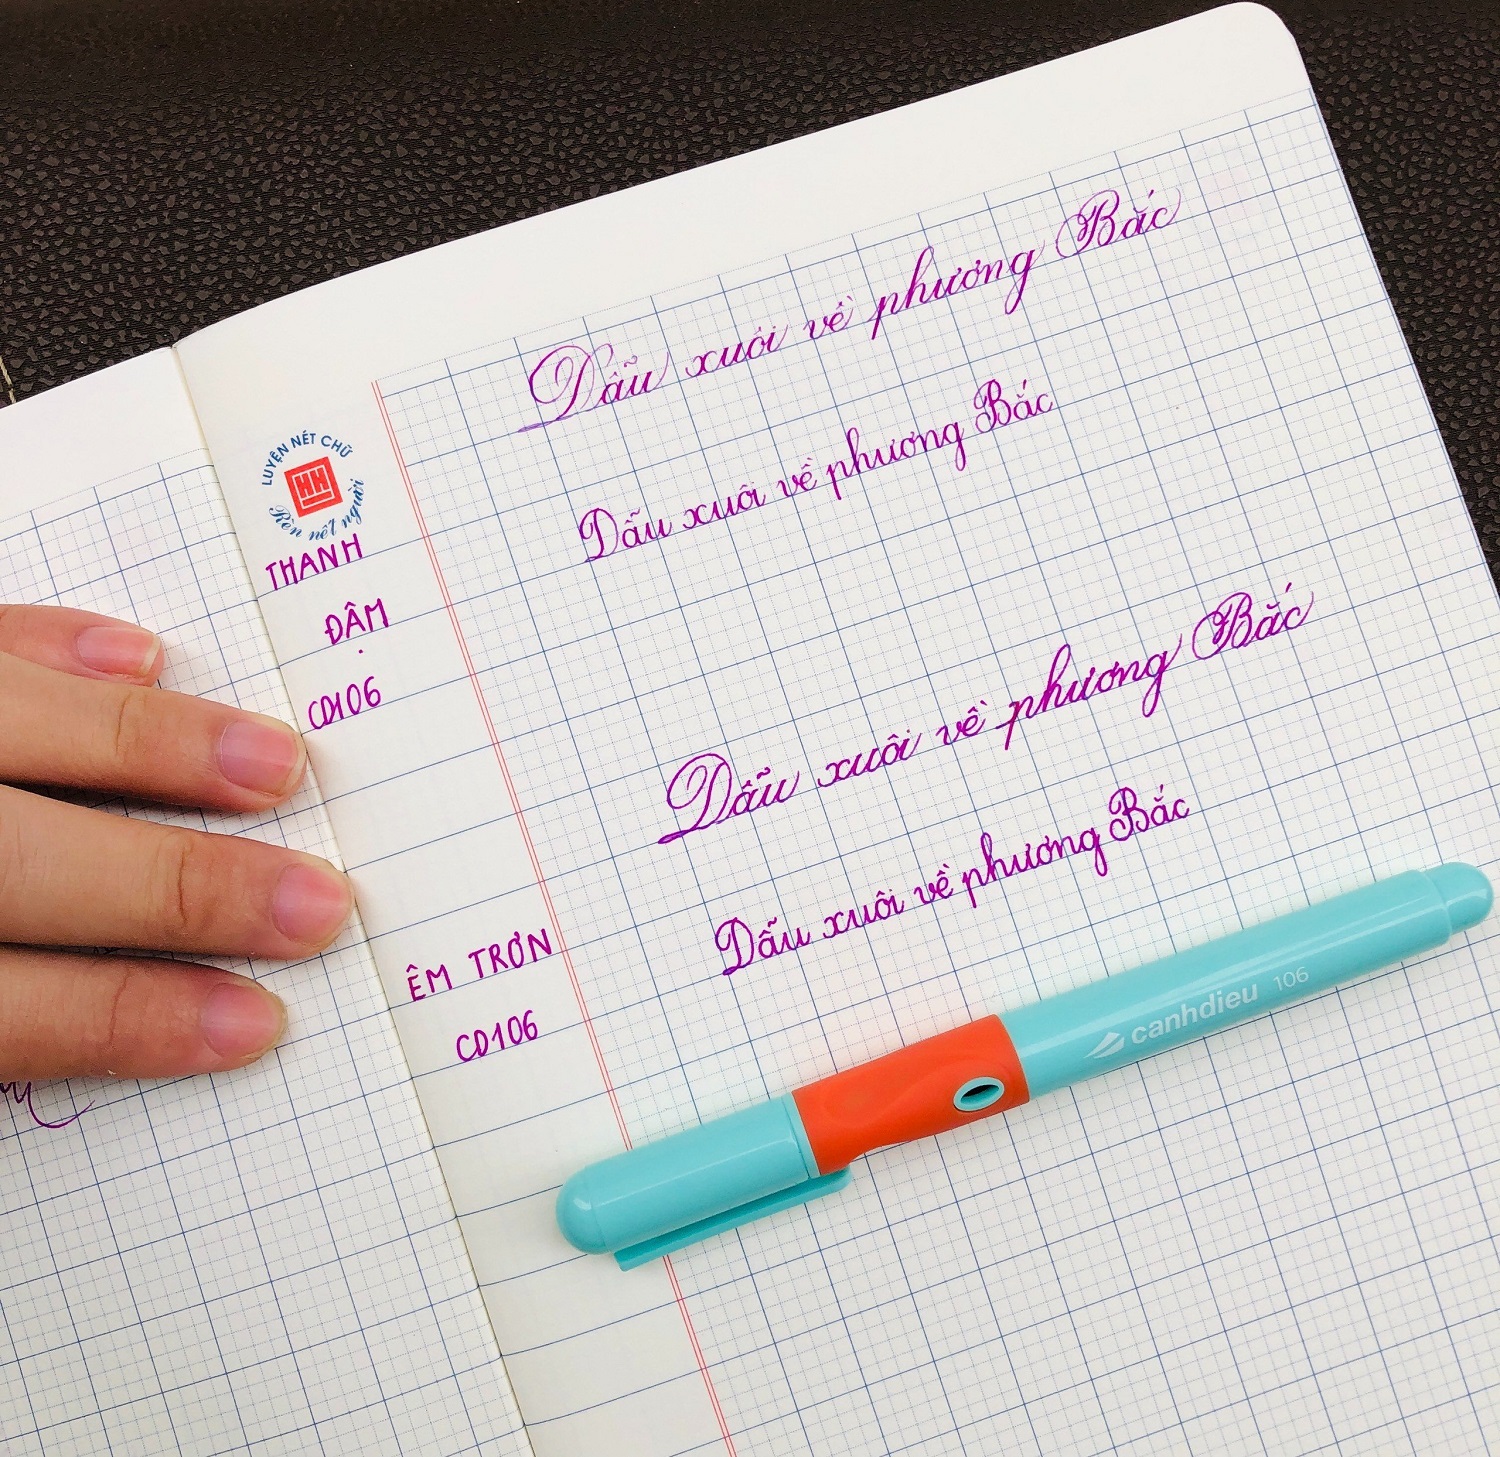 LUYỆN NÉT CHỮ
HH
Rèn nét người
THANH
ĐẬM
CD106
Dẫu xuôi về phương Bắc
Dẫu xuôi về phương Bắc
Dẫu xuôi về phương Bắc
Dẫu xuôi về phương Bắc
ÊM TRƠN
CD106
canhdieu 106